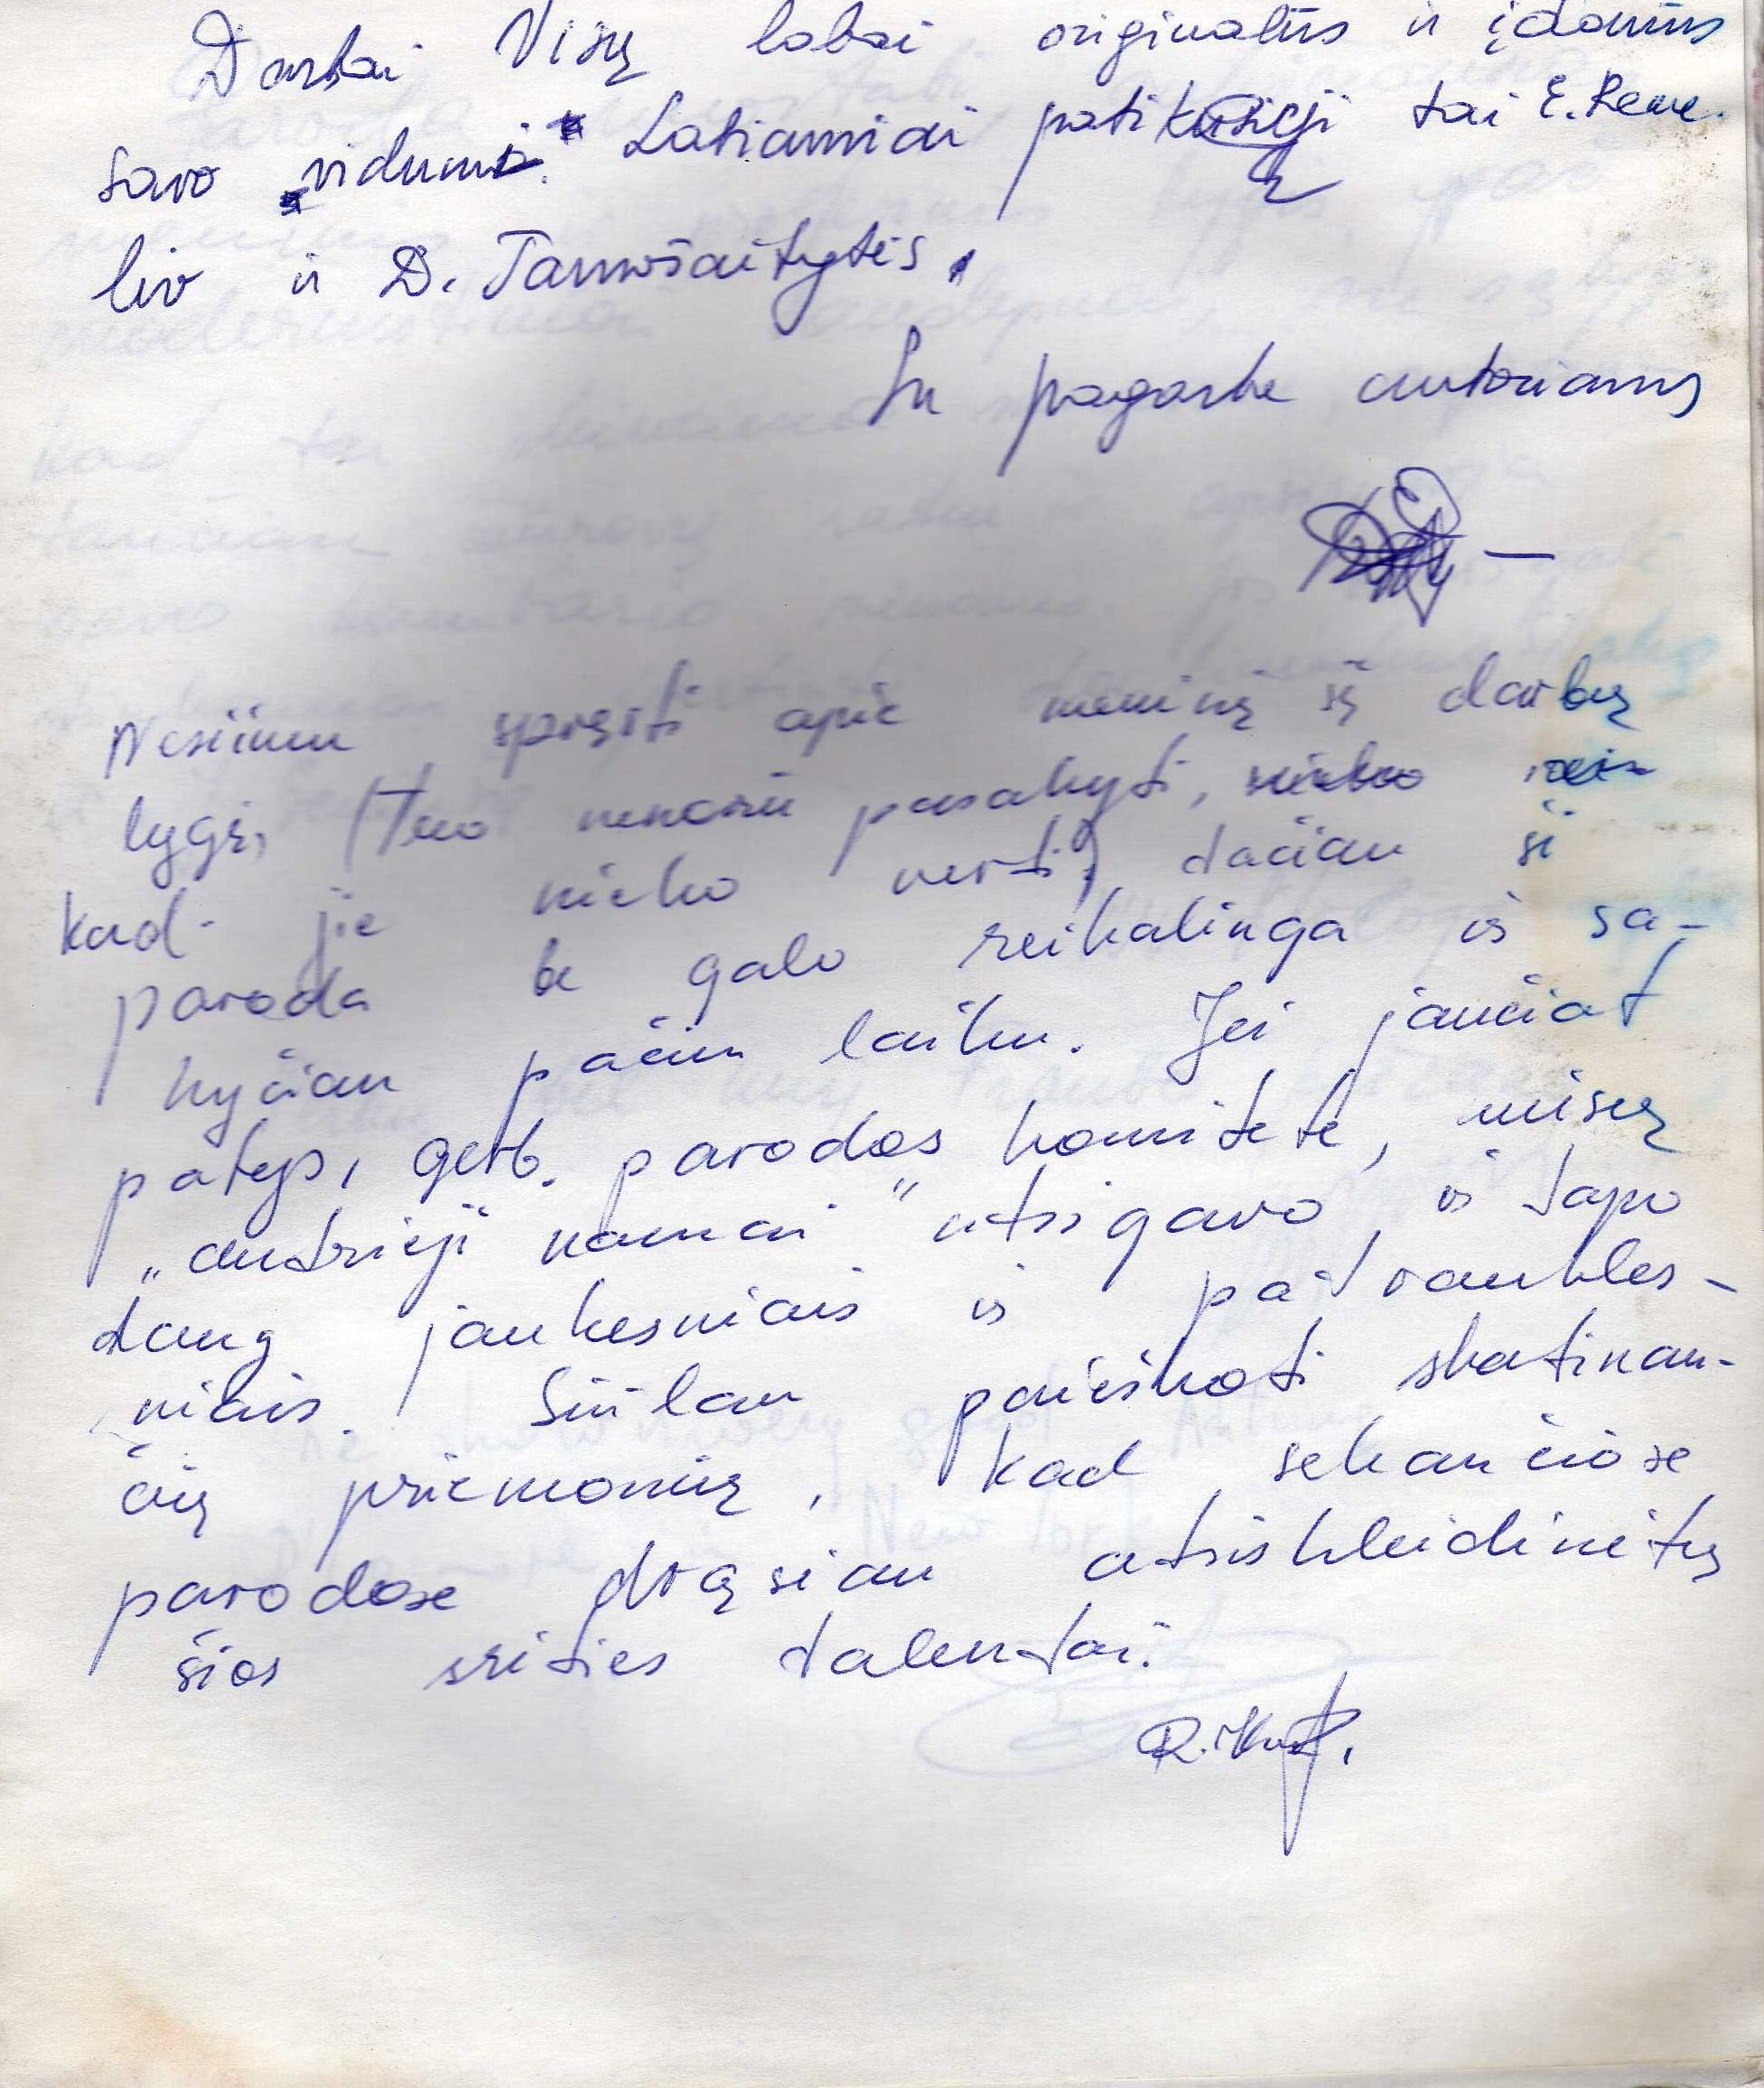 Darbai Visų labai originalūs ir įdomūs
savo vidumi. Labiausiai patikusieji tai E. Reme-
liv ir D. Tamošaitytės.
Su pagarba autoriams
Nesiimu spręsti apie meninę šų darbų
lygį, (tuo nenoriu pasakyti,
kad jie nieko verti) tačiau ši
paroda be galo reikalinga ir sa-
kyčiau pačiu laiku. Jei jaučiat
patys, gerb. parodos komitete, mūsų
„antrieji namai" atsigavo ir tapo
daug jaukesniais ir patraukles-
niais. Siūlau paieškoti skatinan-
čių priemonių, kad sekančiose
parodose drąsiau atsiskleidinėtų
šios srities talentai.